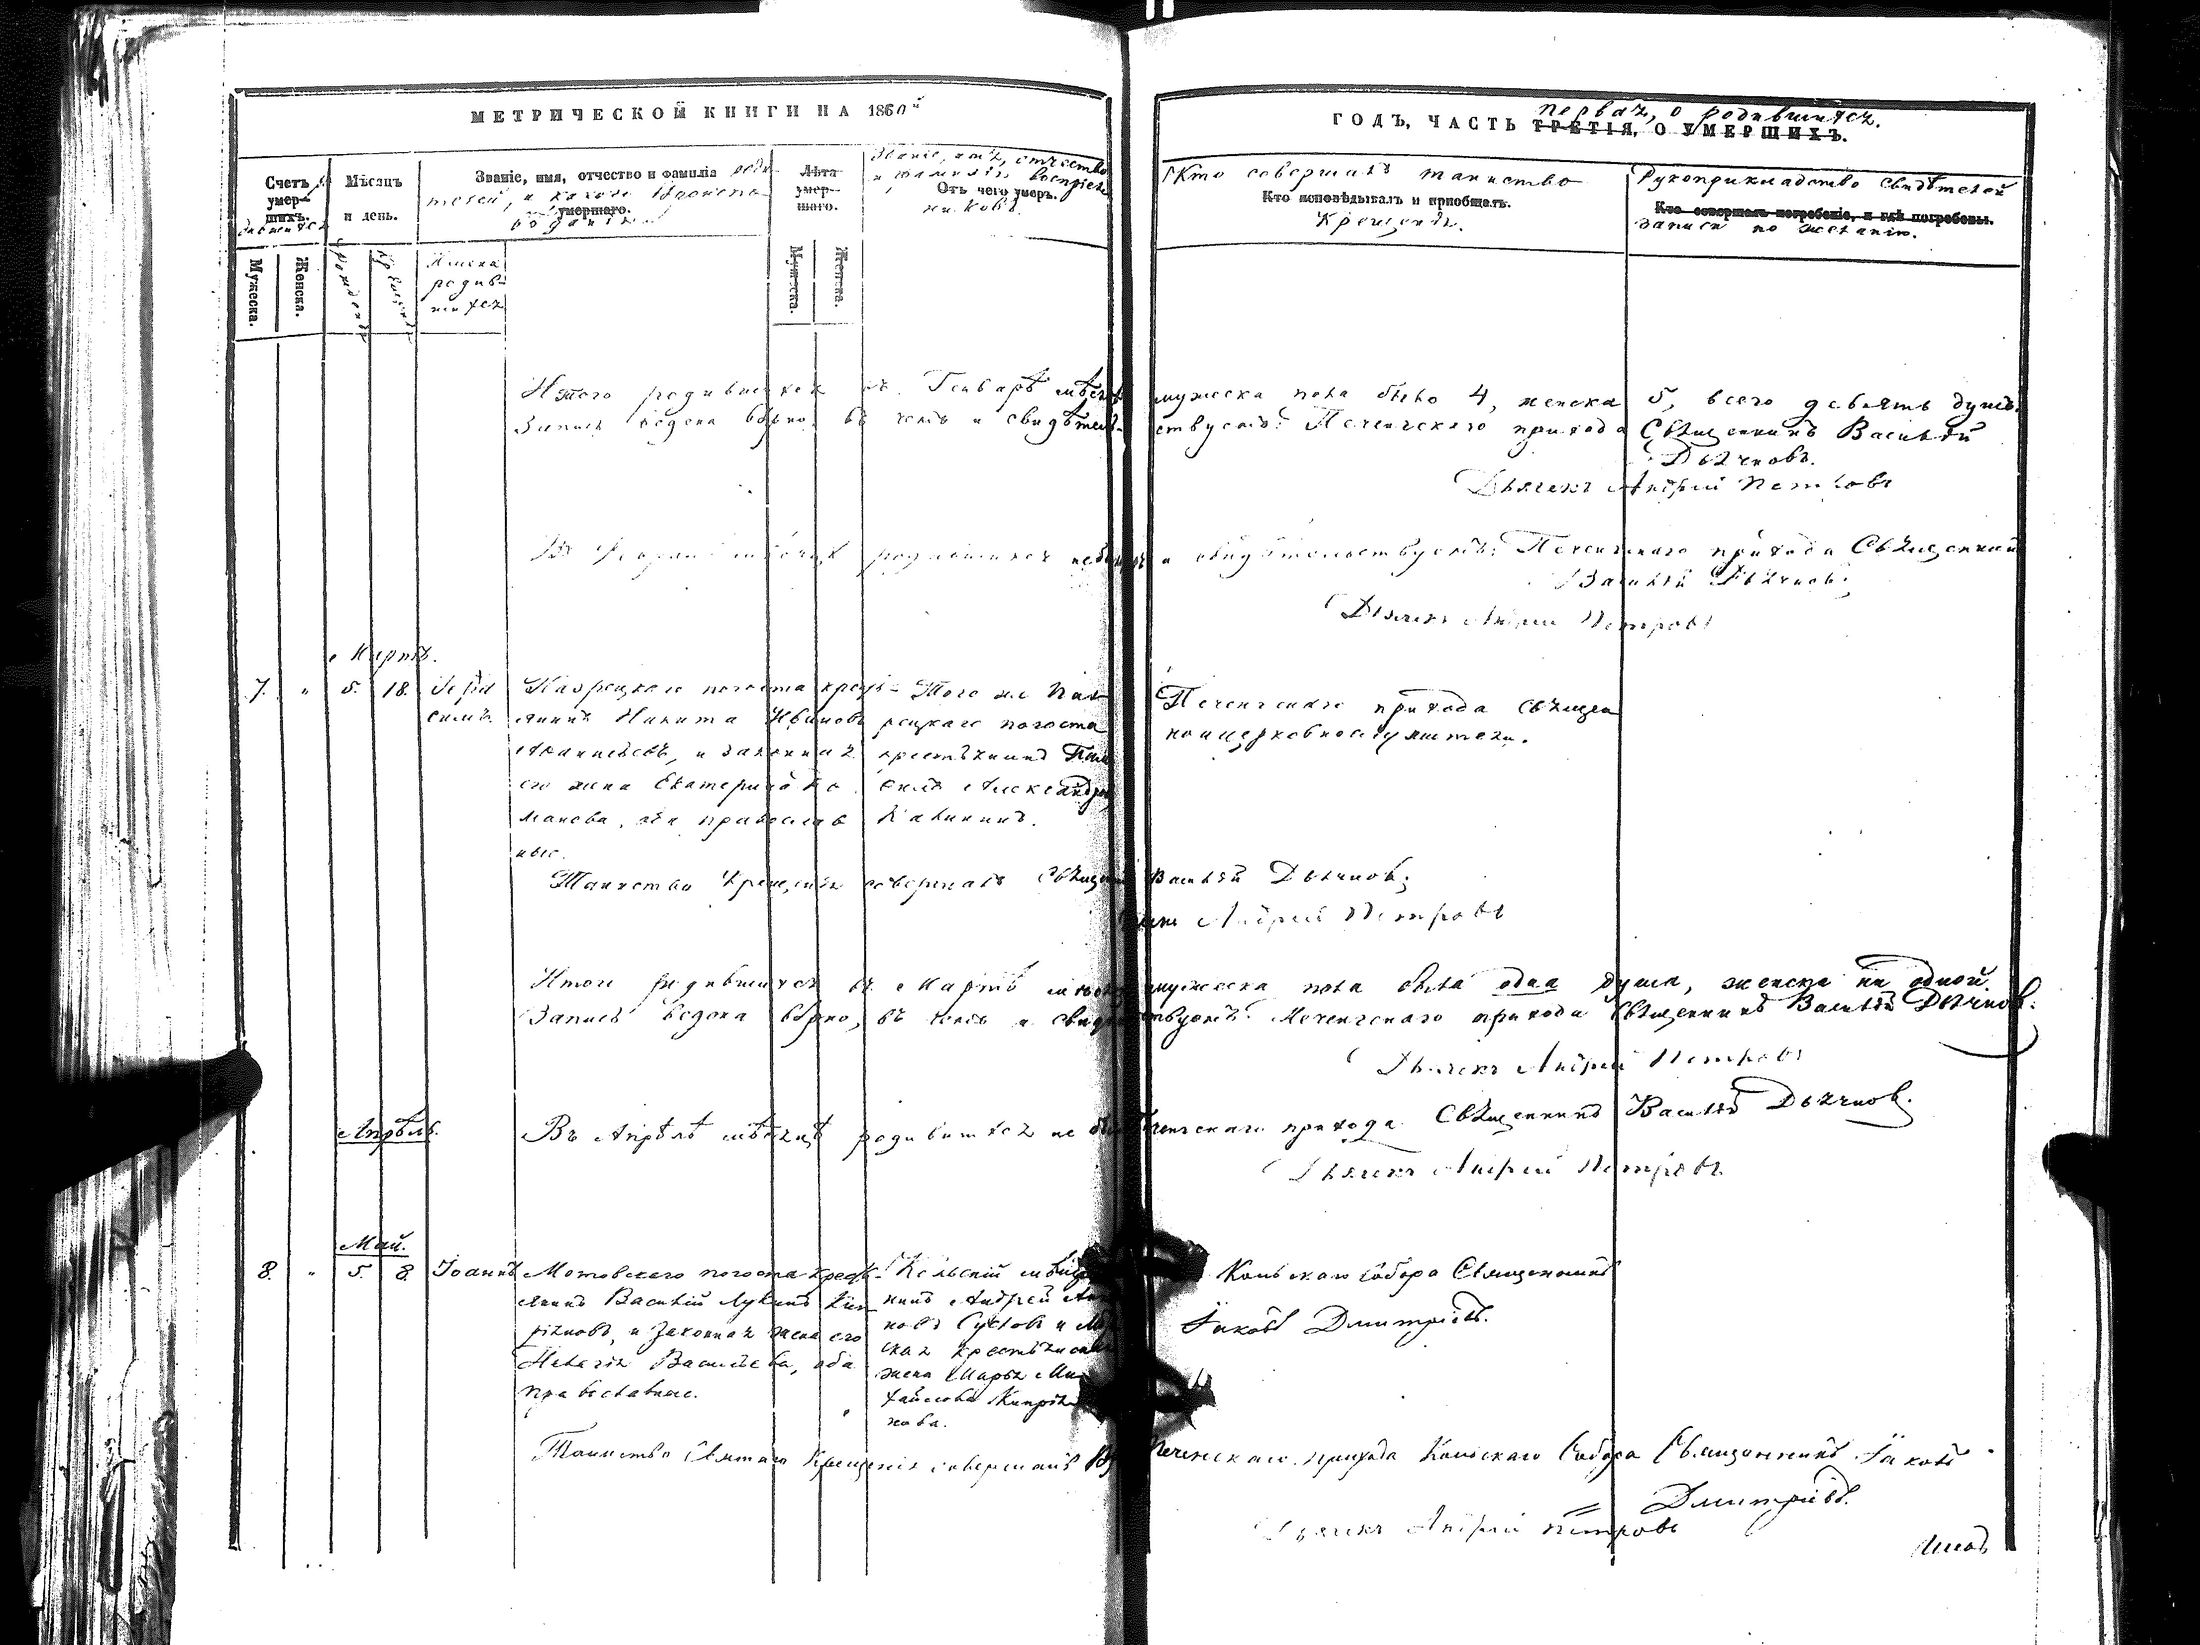 МЕТРИЧЕСКОЙ КНИГИ НА 1860й
ГОДЪ, ЧАСТЬ ТРЕТІЯ, О УМЕРШИХЪ.
первая, о родившихся.
Счетъ умершихъ.
Мѣсяцъ и день.
Званіе, имя, отчество и фамилія умершаго.
Лѣта умершаго.
Званіе, имя, отчество и фамилія воспріемниковъ.
Отъ чего умеръ.
Кто совершалъ таинство
Кто исповѣдывалъ и пріобщалъ.
крещенія.
Рукоприкладство свидѣтелей
Кто совершалъ погребеніе, и гдѣ погребены.
записи по желанію.
Мужеска.
Женска.
Имена
родив-
шихся
Мужеска.
Женска.
Итого родившихся въ Генварѣ мѣсяцѣ мужеска пола было 4, женска 5, всего девять душъ.
Запись ведена вѣрно, въ чемъ и свидѣтельствуетъ: Печенгскаго прихода Священникъ Василій
Дьячковъ.
Дьячекъ Андрей Петровъ
мѣсяцѣ родившихся небыло и свидѣтельствуетъ: Печенгскаго прихода Священникъ
Василій Дьячковъ.
Дьячекъ Андрей Петровъ
Мартъ.
7. " 5. 18. Гера Пазрецкаго погоста кресть- Того же Паз- Печенгскаго прихода священ
симъ янинъ Никита Ивановъ рецкаго погоста
и законная крестьянинъ
его жена Екатерина Ро Александровъ
манова, оба православ Калининъ.
ные.
Таинство крещенія совершалъ Священникъ Василій Дьячковъ.
Андрей Петровъ
Итого родившихся въ Мартѣ мѣсяцѣ мужеска пола была одна душа, женска ни одной.
Запись ведена вѣрно, въ чемъ и свидѣтельствуетъ: Печенгскаго прихода Священникъ Василій Дьячковъ.
Дьячекъ Андрей Петровъ
Апрѣль.
Въ Апрѣлѣ мѣсяцѣ родившихся не было Печенгскаго прихода Священникъ Василій Дьячковъ.
Дьячекъ Андрей Петровъ
Май.
8. " 5. 8. Іоаннъ Мотовскаго погоста кресть- Кольскій мѣщанинъ Кольскаго собора Священникъ
янинъ Василій Лукинъ Кип Андрей Іаковъ Дмитріевъ.
ріяновъ, и законная жена его
Пелагія Васильева, оба ская крестьянская
православные. жена Марья Ми
хайлова Кипрія
нова.
Таинство Святаго Крещенія совершалъ Печенгскаго прихода Кольскаго Собора Священникъ Іаковъ
Дмитріевъ.
Дьячекъ Андрей Петровъ